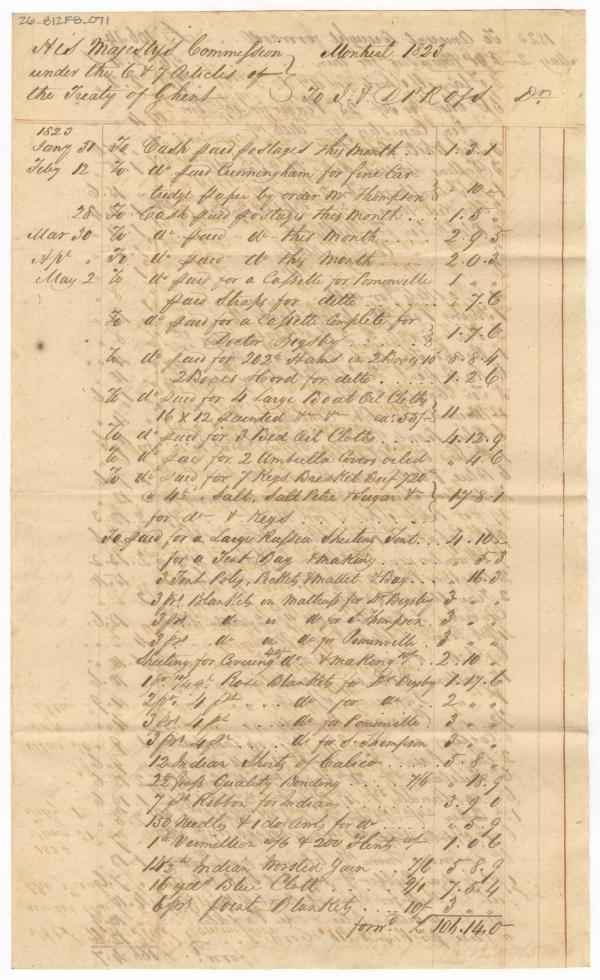 26-B12F8-071
His Majesty's Commission
under the 6 & 7 Articles of
the Treaty of Ghent
Montreal 1823
To J. & D. Ross Dr.
1823
Jany 31 To Cash paid postages this Month .. 1.3.1
Feby 12 To do paid Cunningham for fine Car-
tridge paper by order Mr Thompson } " 10 "
28 To Cash paid postages this Month .. 1.5 "
Mar 30 To do paid do this Month .... 2.9.5
Apr " To do paid do this Month .... 2.0.3
May 2 To do paid for a Cassette for Pomonville 1 " "
paid Straps for detto .... " 7.6
To do paid for a Cassette Complete for
Doctor Bigsby ..... } 1.7.6
to do paid for 202 lb Hams in 2 Boxes 10 8.8.4
2 Boxes & Cord for detto .... 1.2.6
To do paid for 4 Large Boat Oil Cloths
16 x 12 painted &c &c ea. 55/- } 11 " "
To do paid for 3 Bed Oil Cloths .... 4.12.9
To do paid for 2 Umbrella Covers oiled " 4.6
To do paid for 7 Kegs Brisket Beef 720
@ 4d, Salt, Salt Petre & Sugar &c
for do & Kegs ..... } 17.8.1
To paid for a Large Russea Sheeting Tent .. 4.10 "
for a Tent Bag & making .... " 5.3
3 Tent Poles, Pickets & Mallet & Bag ... " 16.3
3 prs. Blankets in Mattrass for Dr. Bigsby 3 " "
3 prs. do in do for S. Thompson 3 " "
3 prs. do in do for Pomonville 3 " "
Sheeting for Covering do & making 2.10 "
1 pr. Rose Blankets for Dr. Bigsby 1.17.6
2 prs. 4 pt. .... do for do .. 2 " "
3 prs. 4 pt. .... do for Pomonville 3 " "
3 prs. 4 pt. .... do for S. Thompson 3 " "
12 Indian Shirts of Calico .... 5.8 "
Gross Quality Bending ... 7/6 " 18.9
7 ps Ribbon for Indians .... 3.9.0
150 Needles & 1 doz for do .. " 5.9
1 lb Vermillion & 200 Flints 1.0.6
14½ lb Indian Worsted Yarn .. 7/6 5.8.9
16 yds. Blue Cloth .... 9/1 7.5.4
6 prs. Point Blankets .... 10/ 3 " "
forwd. £ 106.14.0